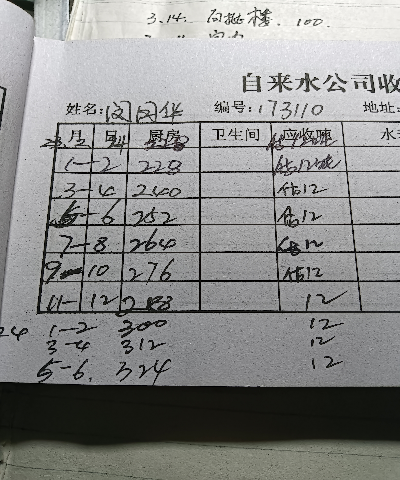 3.14. 100.
自来水公司收
姓名: 闵国华 编号: 173110 地址:
月 日 厨房 卫生间 应收吨 水
1-2 228 估12吨
3-4 240 估12
5-6 252 估12
7-8 264 估12
9-10 276 估12
11-12 288 12
24 1-2 300 12
3-4 312 12
5-6. 324 12